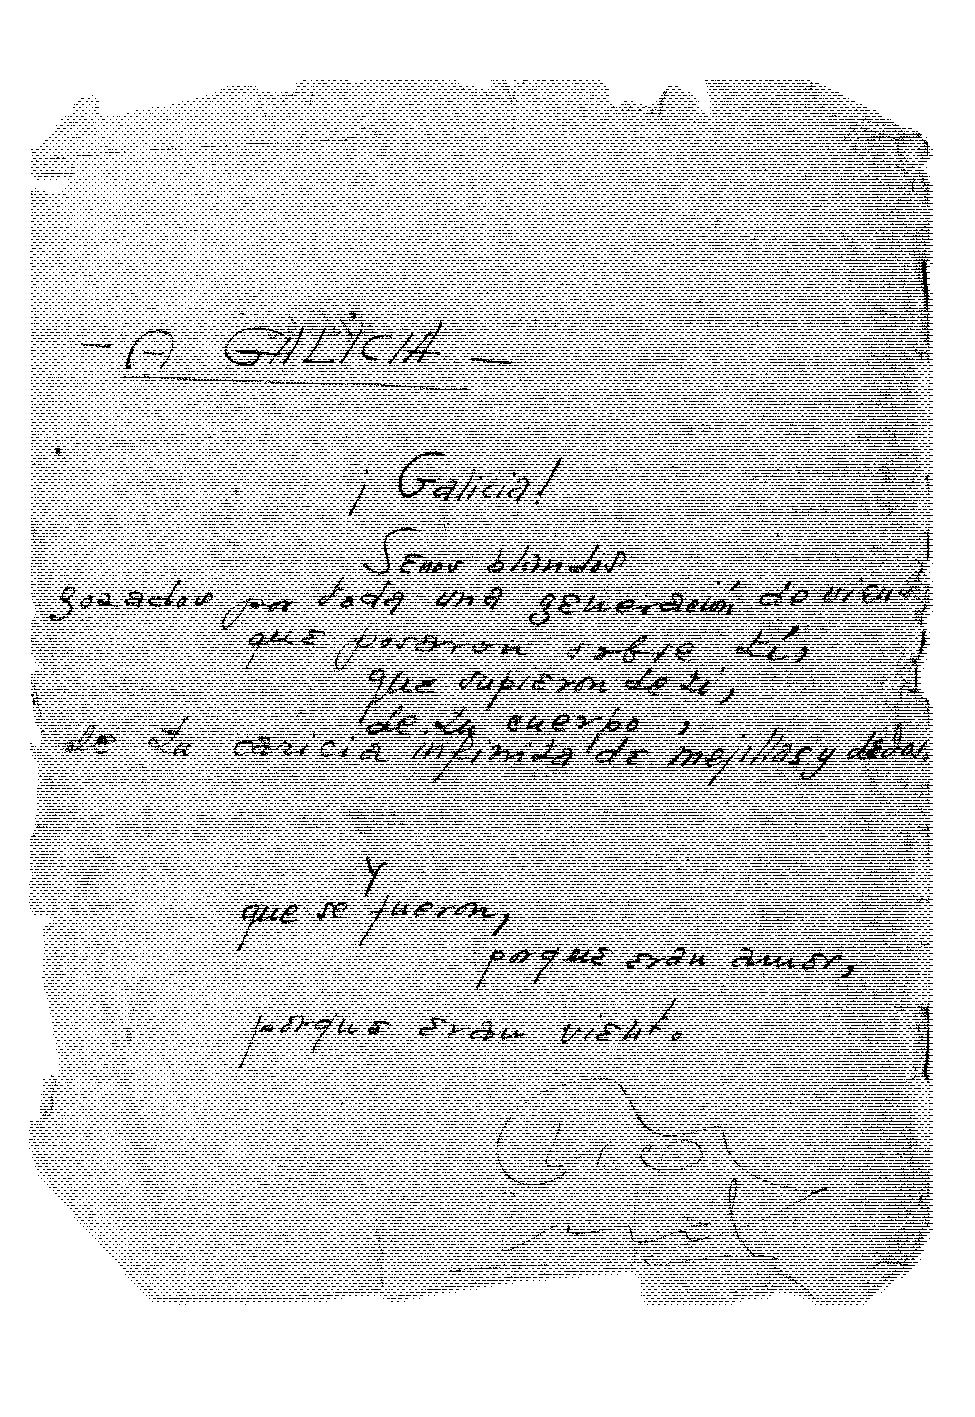 - A GALICIA -
¡Galicia!
Senos blandos
gozados por toda una generación de vientos
que posaron sobre tí,
que supieron de tí,
de tu cuerpo,
de tu caricia íntima de mejillas y dedos
Y
que se fueron,
porque eran amor,
porque eran viento.